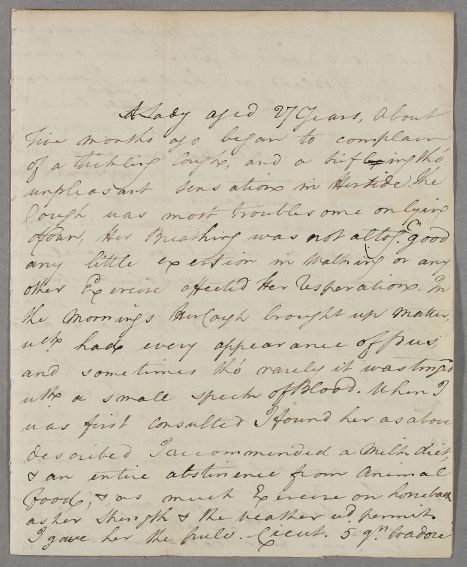 A Lady aged 27 Years, About
five months ago began to complain
of a tickling Cough, and a trifling tho'
unpleasant sensation in Her side, The
Cough was most troublesome on lying
down, Her Breathing was not altog.r good
any little exertion in Walking or any
other Exercise affected Her Resperation. In
the Mornings Her Cough brought up Matter,
wch. had every appearance of pus,
and sometimes tho' rarely it was ting'd
wth. a small speck of Blood. When I
was first consulted I found her as above
described I recommended a Milk diet,
& an entire abstinence from Animal
Food, & as much Exercise on horseback
as her Strength & the weather wd. permit
I gave her the pulv. Cicut. 5 grs.